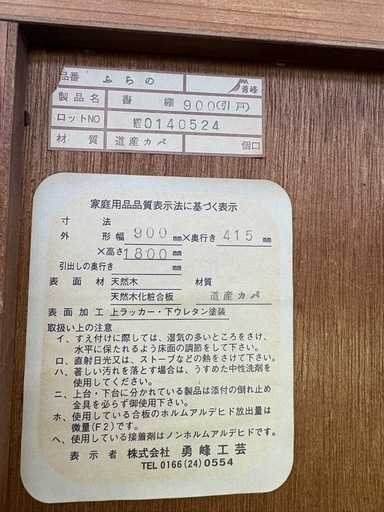 品番 ふらの
勇峰
製品名 書棚 900(引戸)
ロットNO 0140524
材質 道産カバ 個口
家庭用品品質表示法に基づく表示
寸法
外形幅 900 mm×奥行き 415 mm
×高さ 1800 mm
引出しの奥行き mm
表面材 天然木 材質
天然木化粧合板 道産カバ
表面加工 上ラッカー・下ウレタン塗装
取扱い上の注意
イ、すえ付けに際しては、湿気の多いところをさけ、
水平に保たれるよう床面の調節をして下さい。
ロ、直射日光又は、ストーブなどの熱をさけて下さい。
ハ、著しい汚れを落とす場合は、うすめた中性洗剤を
使用してください。
ニ、上台・下台に分かれている製品は添付の倒れ止め
金具を必らず御使用下さい。
ホ、使用している合板のホルムアルデヒド放出量は
微量(F2)です。
ヘ、使用している接着剤はノンホルムアルデヒドです。
表示者 株式会社 勇峰工芸
TEL 0166(24)0554